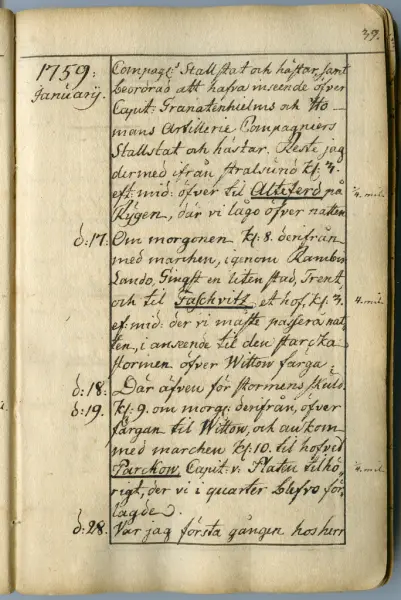 39.
1759: Compagi:s Stallstat och hästar, samt
Januarij. beordrad att hafva inseende öfver
Caput: Granatenhielms och Ho-
mans Artillerie Compagniers
Stallstat och hästar. Reste jag
dermed ifrån Stralsund kl: 3.
eft: mid: öfver til Alteferd på ¼. mil.
Rÿgen, där vi lågo öfver natten
d: 17. Om morgonen kl: 8. derifrån
med marchen, igenom Rambin
Lando, Gingst en liten stad, Trent
och til Faschvitz, et hof, kl: 3. 4. mil.
ef: mid: der vi måste passera nat
ten, i anseende til den starcka
stormen öfver Wittow färga.
d: 18. Där äfven för stormens skuld.
d: 19. kl: 9. om morg: derifrån, öfver
färgan til Wittow, och ankom
med marchen kl: 10. til hofvid
Parchow, Caput: v: Platu tilhö,
rigt, der vi i quarter blefvo för,
lagde.
d: 28. Var jag första gången hos herr